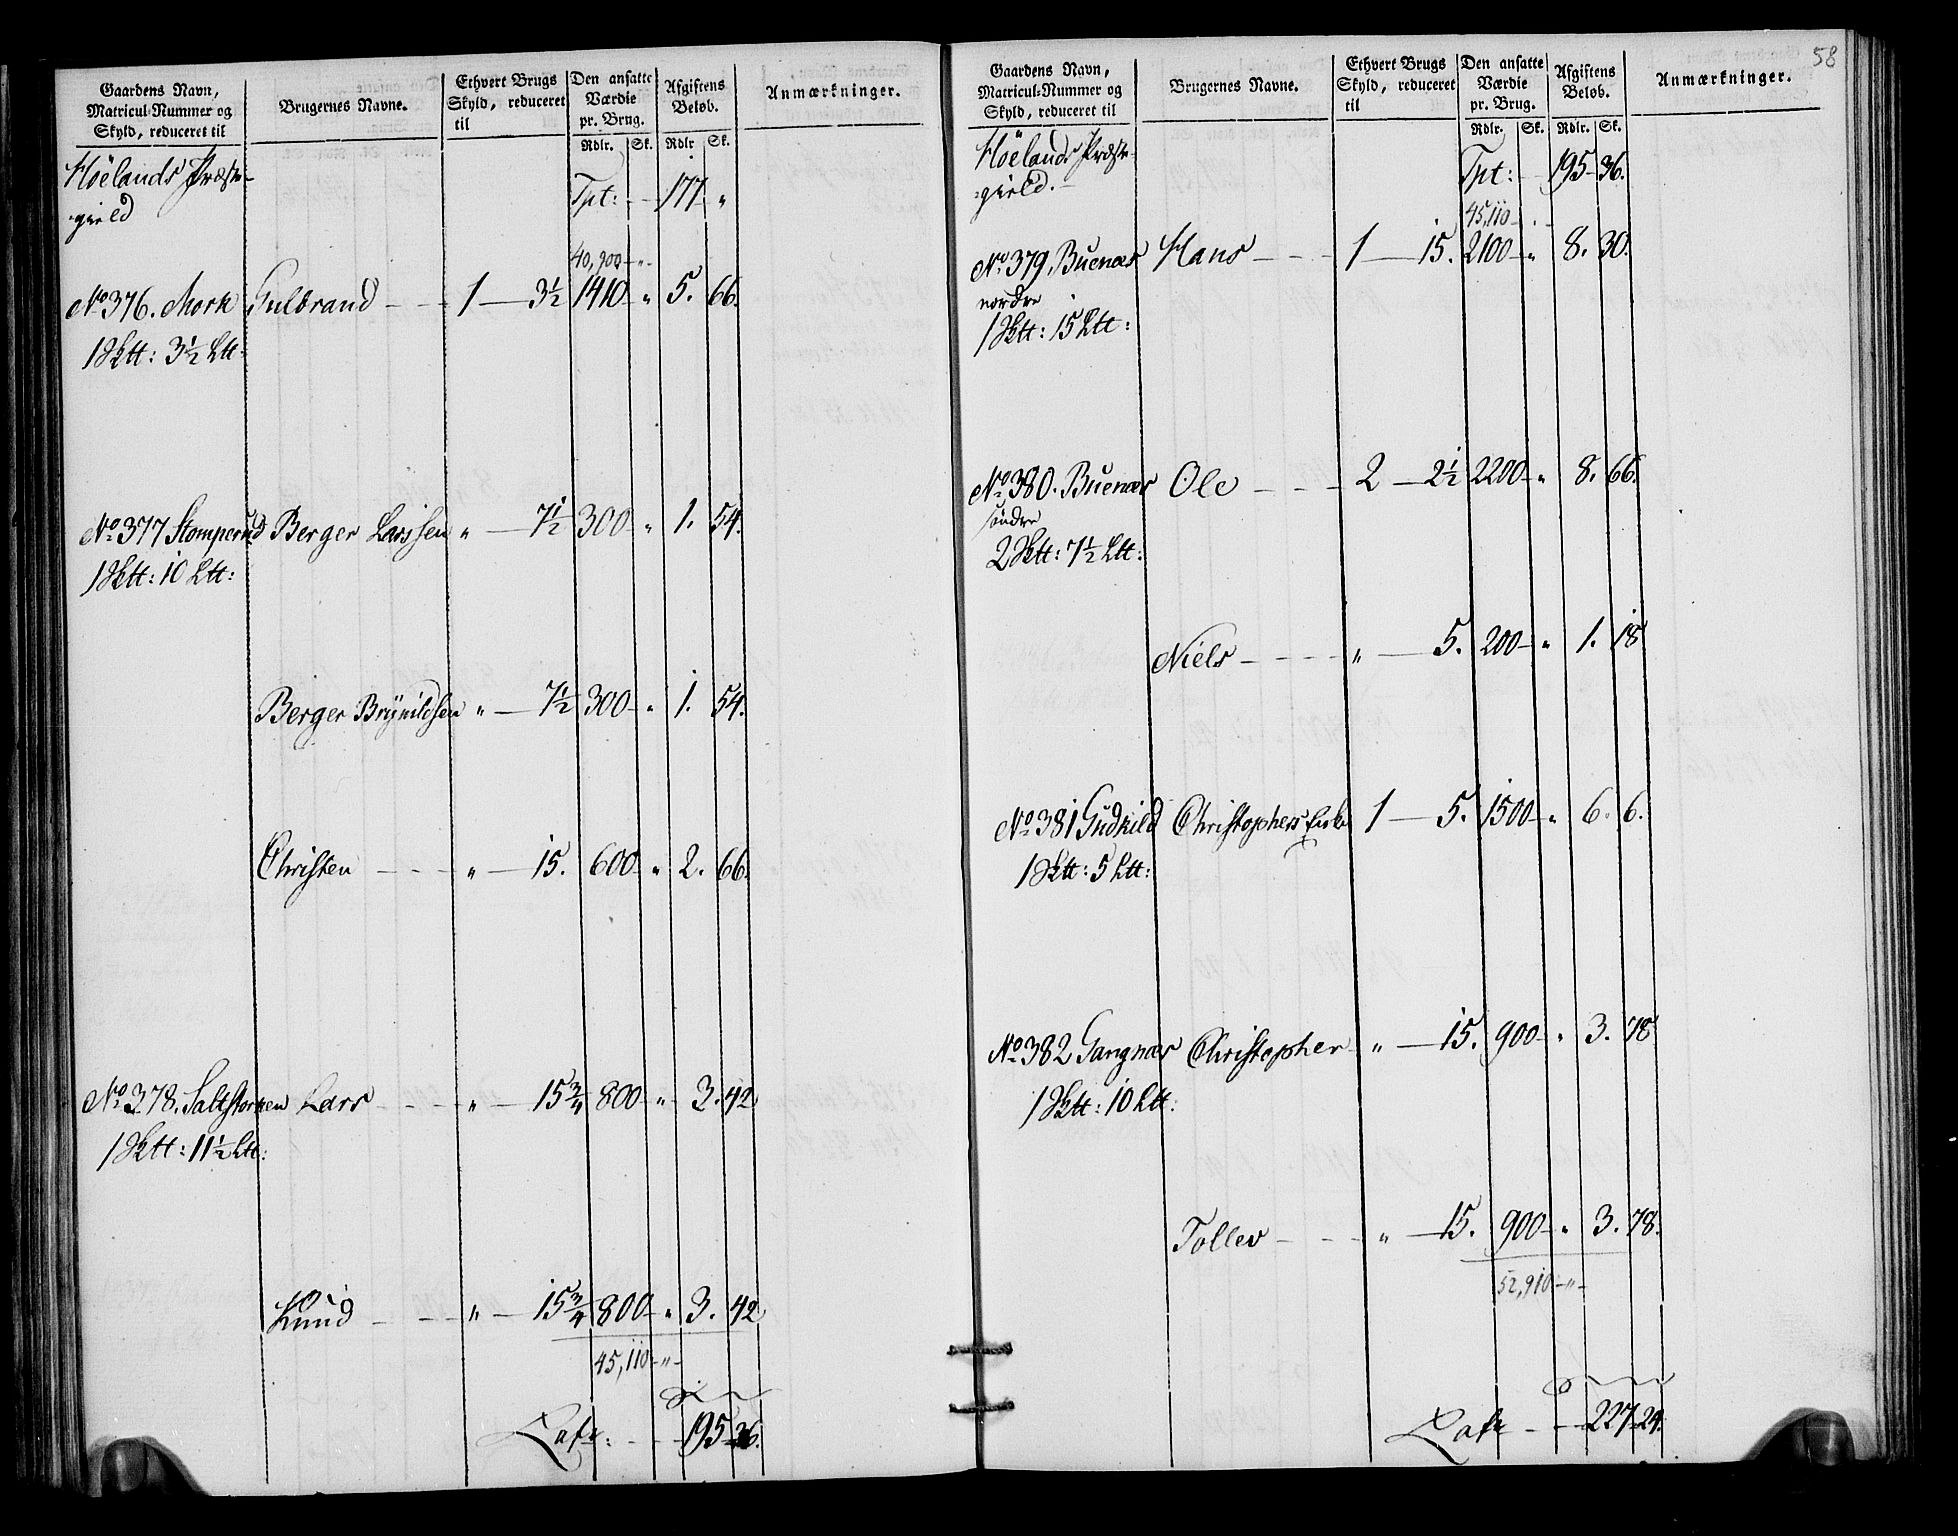 Gaardens Navn, Matricul-Nummer og Skyld, reduceret til
Brugernes Navne.
Ethvert Brugs Skyld, reduceret til
Den ansatte Værdie pr. Brug.
Afgiftens Beløb.
Anmærkninger.
Rdlr. Sk. Rdlr Sk.
Høelands Præste-
gield
Tpt: 177 "
40,900 - "
No 376. Mork Gulbrand 1 3½ 1410 " 5. 66.
1 Sktt: 3½ Ltt:
No 377 Stomperud Berger Larssen " 7½ 300 " 1. 54.
1 Sktt: 10 Ltt:
Berger Brynildsen " 7½ 300 " 1. 54.
Christen " 15. 600 " 2. 66.
No 378. Saltstornen Lars " 15¾ 800 " 3. 42
1 Sktt: 11½ Ltt:
Knud " 15¾ 800 " 3. 42
45,110 - "
Latr: 195 36.
58
Gaardens Navn, Matricul-Nummer og Skyld, reduceret til
Brugernes Navne.
Ethvert Brugs Skyld, reduceret til
Den ansatte Værdie pr. Brug.
Afgiftens Beløb.
Anmærkninger.
Rdlr. Sk. Rdlr. Sk.
Høelands Præste-
gield.
Tpt: 195 36.
45,110
No 379. Buenæs Hans 1 15. 2100 " 8. 30.
nordre
1 Sktt: 15 Ltt:
No 380. Buenæs Ole 2 2½ 2200 " 8. 66.
søndre
2 Sktt: 7½ Ltt:
Niels " 5. 200 " 1. 18
No 381 Gudkild Christophers Enke 1 5. 1500 " 6. 6.
1 Sktt: 5 Ltt:
No 382 Gangnæs Christopher " 15. 900 " 3. 78
1 Sktt: 10 Ltt:
Tollev " 15. 900 " 3. 78.
52,910 - "
Latr 227 24.